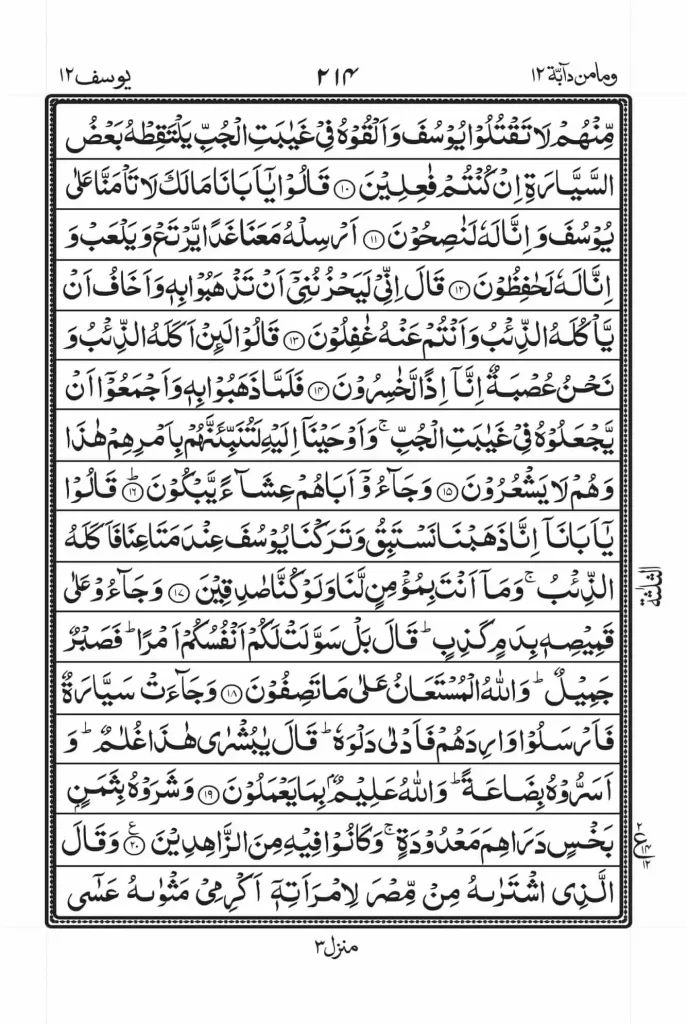 وما من دآبة ١٢
٢١٤
يوسف ١٢
مِّنْهُمْ لَا تَقْتُلُوْا يُوْسُفَ وَاَلْقُوْهُ فِيْ غَيٰبَتِ الْجُبِّ يَلْتَقِطْهُ بَعْضُ
السَّيَّارَةِ اِنْ كُنْتُمْ فٰعِلِيْنَ ۝١٠ قَالُوْا يٰٓاَبَانَا مَالَكَ لَا تَاْمَنَّا عَلٰى
يُوْسُفَ وَاِنَّا لَهٗ لَنٰصِحُوْنَ ۝١١ اَرْسِلْهُ مَعَنَا غَدًا يَّرْتَعْ وَيَلْعَبْ وَ
اِنَّا لَهٗ لَحٰفِظُوْنَ ۝١٢ قَالَ اِنِّيْ لَيَحْزُنُنِيْٓ اَنْ تَذْهَبُوْا بِهٖ وَاَخَافُ اَنْ
يَّاْكُلَهُ الذِّئْبُ وَاَنْتُمْ عَنْهُ غٰفِلُوْنَ ۝١٣ قَالُوْا لَئِنْ اَكَلَهُ الذِّئْبُ وَ
نَحْنُ عُصْبَةٌ اِنَّآ اِذًا لَّخٰسِرُوْنَ ۝١٤ فَلَمَّا ذَهَبُوْا بِهٖ وَاَجْمَعُوْٓا اَنْ
يَّجْعَلُوْهُ فِيْ غَيٰبَتِ الْجُبِّ ۚ وَاَوْحَيْنَآ اِلَيْهِ لَتُنَبِّئَنَّهُمْ بِاَمْرِهِمْ هٰذَا
وَهُمْ لَا يَشْعُرُوْنَ ۝١٥ وَجَآءُوْٓ اَبَاهُمْ عِشَآءً يَّبْكُوْنَ ۝١٦ؕ قَالُوْا
يٰٓاَبَانَآ اِنَّا ذَهَبْنَا نَسْتَبِقُ وَتَرَكْنَا يُوْسُفَ عِنْدَ مَتَاعِنَا فَاَكَلَهُ
الذِّئْبُ ۚ وَمَآ اَنْتَ بِمُؤْمِنٍ لَّنَا وَلَوْ كُنَّا صٰدِقِيْنَ ۝١٧ وَجَآءُوْ عَلٰى
الثلثة
قَمِيْصِهٖ بِدَمٍ كَذِبٍ ؕ قَالَ بَلْ سَوَّلَتْ لَكُمْ اَنْفُسُكُمْ اَمْرًا ؕ فَصَبْرٌ
جَمِيْلٌ ؕ وَاللّٰهُ الْمُسْتَعَانُ عَلٰى مَا تَصِفُوْنَ ۝١٨ وَجَآءَتْ سَيَّارَةٌ
فَاَرْسَلُوْا وَارِدَهُمْ فَاَدْلٰى دَلْوَهٗ ؕ قَالَ يٰبُشْرٰى هٰذَا غُلٰمٌ ؕ وَ
اَسَرُّوْهُ بِضَاعَةً ؕ وَاللّٰهُ عَلِيْمٌۢ بِمَا يَعْمَلُوْنَ ۝١٩ وَشَرَوْهُ بِثَمَنٍۢ
بَخْسٍ دَرَاهِمَ مَعْدُوْدَةٍ ۚ وَكَانُوْا فِيْهِ مِنَ الزّٰهِدِيْنَ ۝٢٠ۧ وَقَالَ
٢ ع ١٤ ١٢
الَّذِي اشْتَرٰىهُ مِنْ مِّصْرَ لِامْرَاَتِهٖٓ اَكْرِمِيْ مَثْوٰىهُ عَسٰٓى
منزل ٣